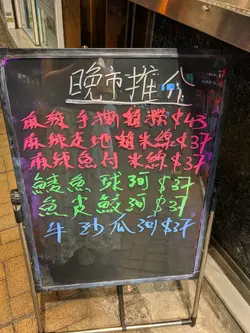 晚市推介
麻辣手撕雞撈$43
麻辣走地雞米線$37
麻辣魚付米線$37
鯪魚球河$37
魚皮 河$37
牛沙瓜河$37